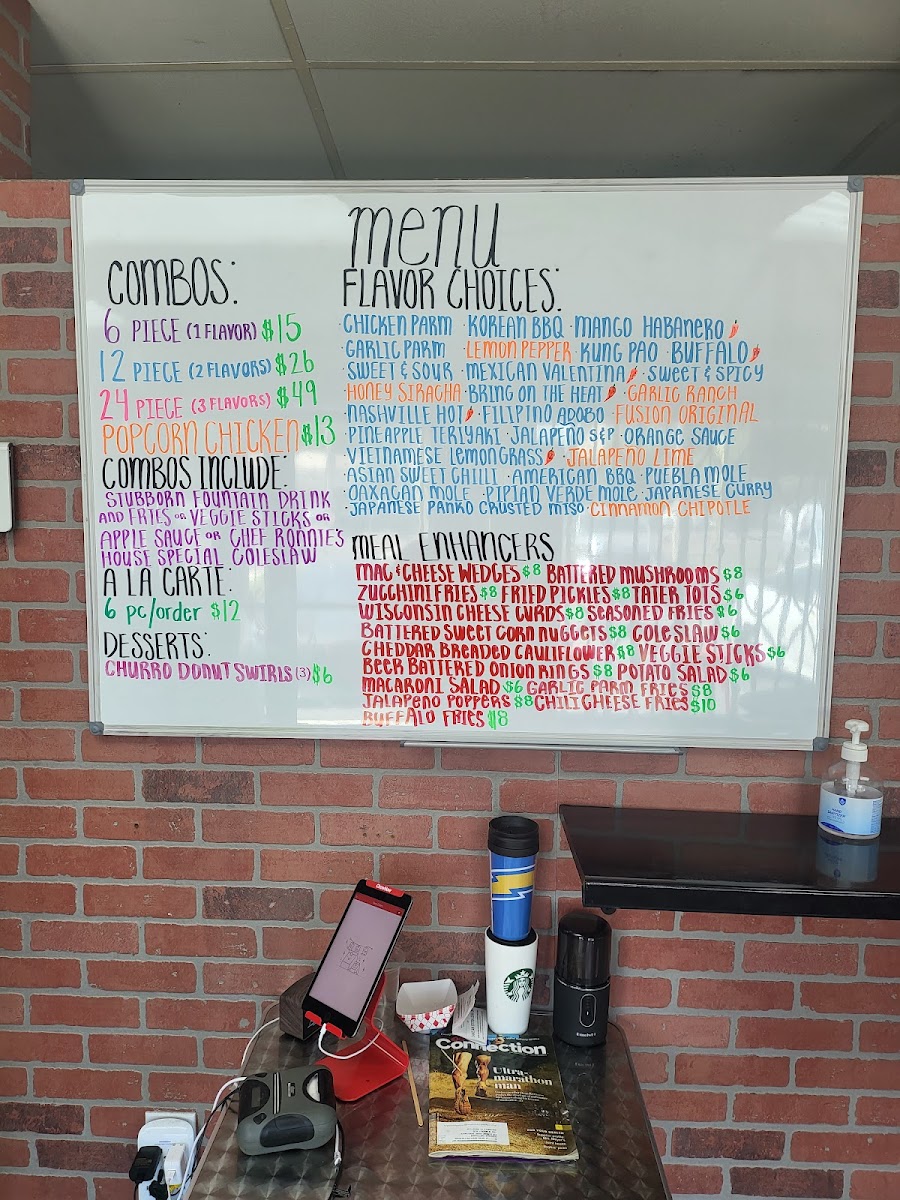 MENU
COMBOS:
6 PIECE (1 FLAVOR) $15
12 PIECE (2 FLAVORS) $26
24 PIECE (3 FLAVORS) $49
POPCORN CHICKEN $13
COMBOS INCLUDE:
STUBBORN FOUNTAIN DRINK
AND FRIES OR VEGGIE STICKS OR
APPLE SAUCE OR CHEF RONNIE'S
HOUSE SPECIAL COLESLAW
A LA CARTE:
6 pc/order $12
DESSERTS:
CHURRO DONUT SWIRLS (3) $6
FLAVOR CHOICES:
·CHICKEN PARM ·KOREAN BBQ ·MANGO HABANERO
·GARLIC PARM ·LEMON PEPPER ·KUNG PAO ·BUFFALO
·SWEET & SOUR ·MEXICAN VALENTINA ·SWEET & SPICY
·HONEY SIRACHA ·BRING ON THE HEAT ·GARLIC RANCH
·NASHVILLE HOT ·FILIPINO ADOBO ·FUSION ORIGINAL
·PINEAPPLE TERIYAKI ·JALAPEÑO S&P ·ORANGE SAUCE
·VIETNAMESE LEMONGRASS ·JALAPENO LIME
·ASIAN SWEET CHILI ·AMERICAN BBQ ·PUEBLA MOLE
·OAXACAN MOLE ·PIPIAN VERDE MOLE ·JAPANESE CURRY
·JAPANESE PANKO CRUSTED MISO ·CINNAMON CHIPOTLE
MEAL ENHANCERS
MAC & CHEESE WEDGES $8 BATTERED MUSHROOMS $8
ZUCCHINI FRIES $8 FRIED PICKLES $8 TATER TOTS $6
WISCONSIN CHEESE CURDS $8 SEASONED FRIES $6
BATTERED SWEET CORN NUGGETS $8 COLESLAW $6
CHEDDAR BREADED CAULIFLOWER $8 VEGGIE STICKS $6
BEER BATTERED ONION RINGS $8 POTATO SALAD $6
MACARONI SALAD $6 GARLIC PARM FRIES $8
JALAPENO POPPERS $8 CHILI CHEESE FRIES $10
BUFFALO FRIES $8
Connection
Ultra-
marathon
man